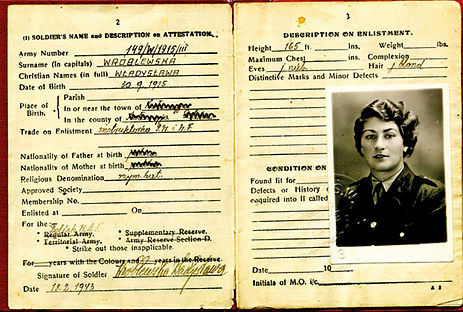 2
(1) SOLDIER'S NAME and DESCRIPTION on ATTESTATION.
Army Number 149/W/1915/III
Surname (in capitals) WRÓBLEWSKA
Christian Names (in full) WŁADYSŁAWA
Date of Birth 30.9.1915
Place of Birth.
Parish
In or near the town of
In the county of
Trade on Enlistment
Nationality of Father at birth
Nationality of Mother at birth
Religious Denomination rzym. kat.
Approved Society
Membership No.
Enlisted at On
For the:—
* Regular Army. * Supplementary Reserve.
* Territorial Army. * Army Reserve Section D.
* Strike out those inapplicable.
For years with the Colours and years in the Reserve.
Signature of Soldier Wróblewska Władysława
Date 18.2.1943
3
DESCRIPTION ON ENLISTMENT.
Height 165 ft. ins. Weight lbs.
Maximum Chest ins. Complexion
Eyes nieb. Hair blond
Distinctive Marks and Minor Defects
CONDITION ON
Found fit for
Defects or History o
enquired into if called
Date 10
Initials of M.O. i/c